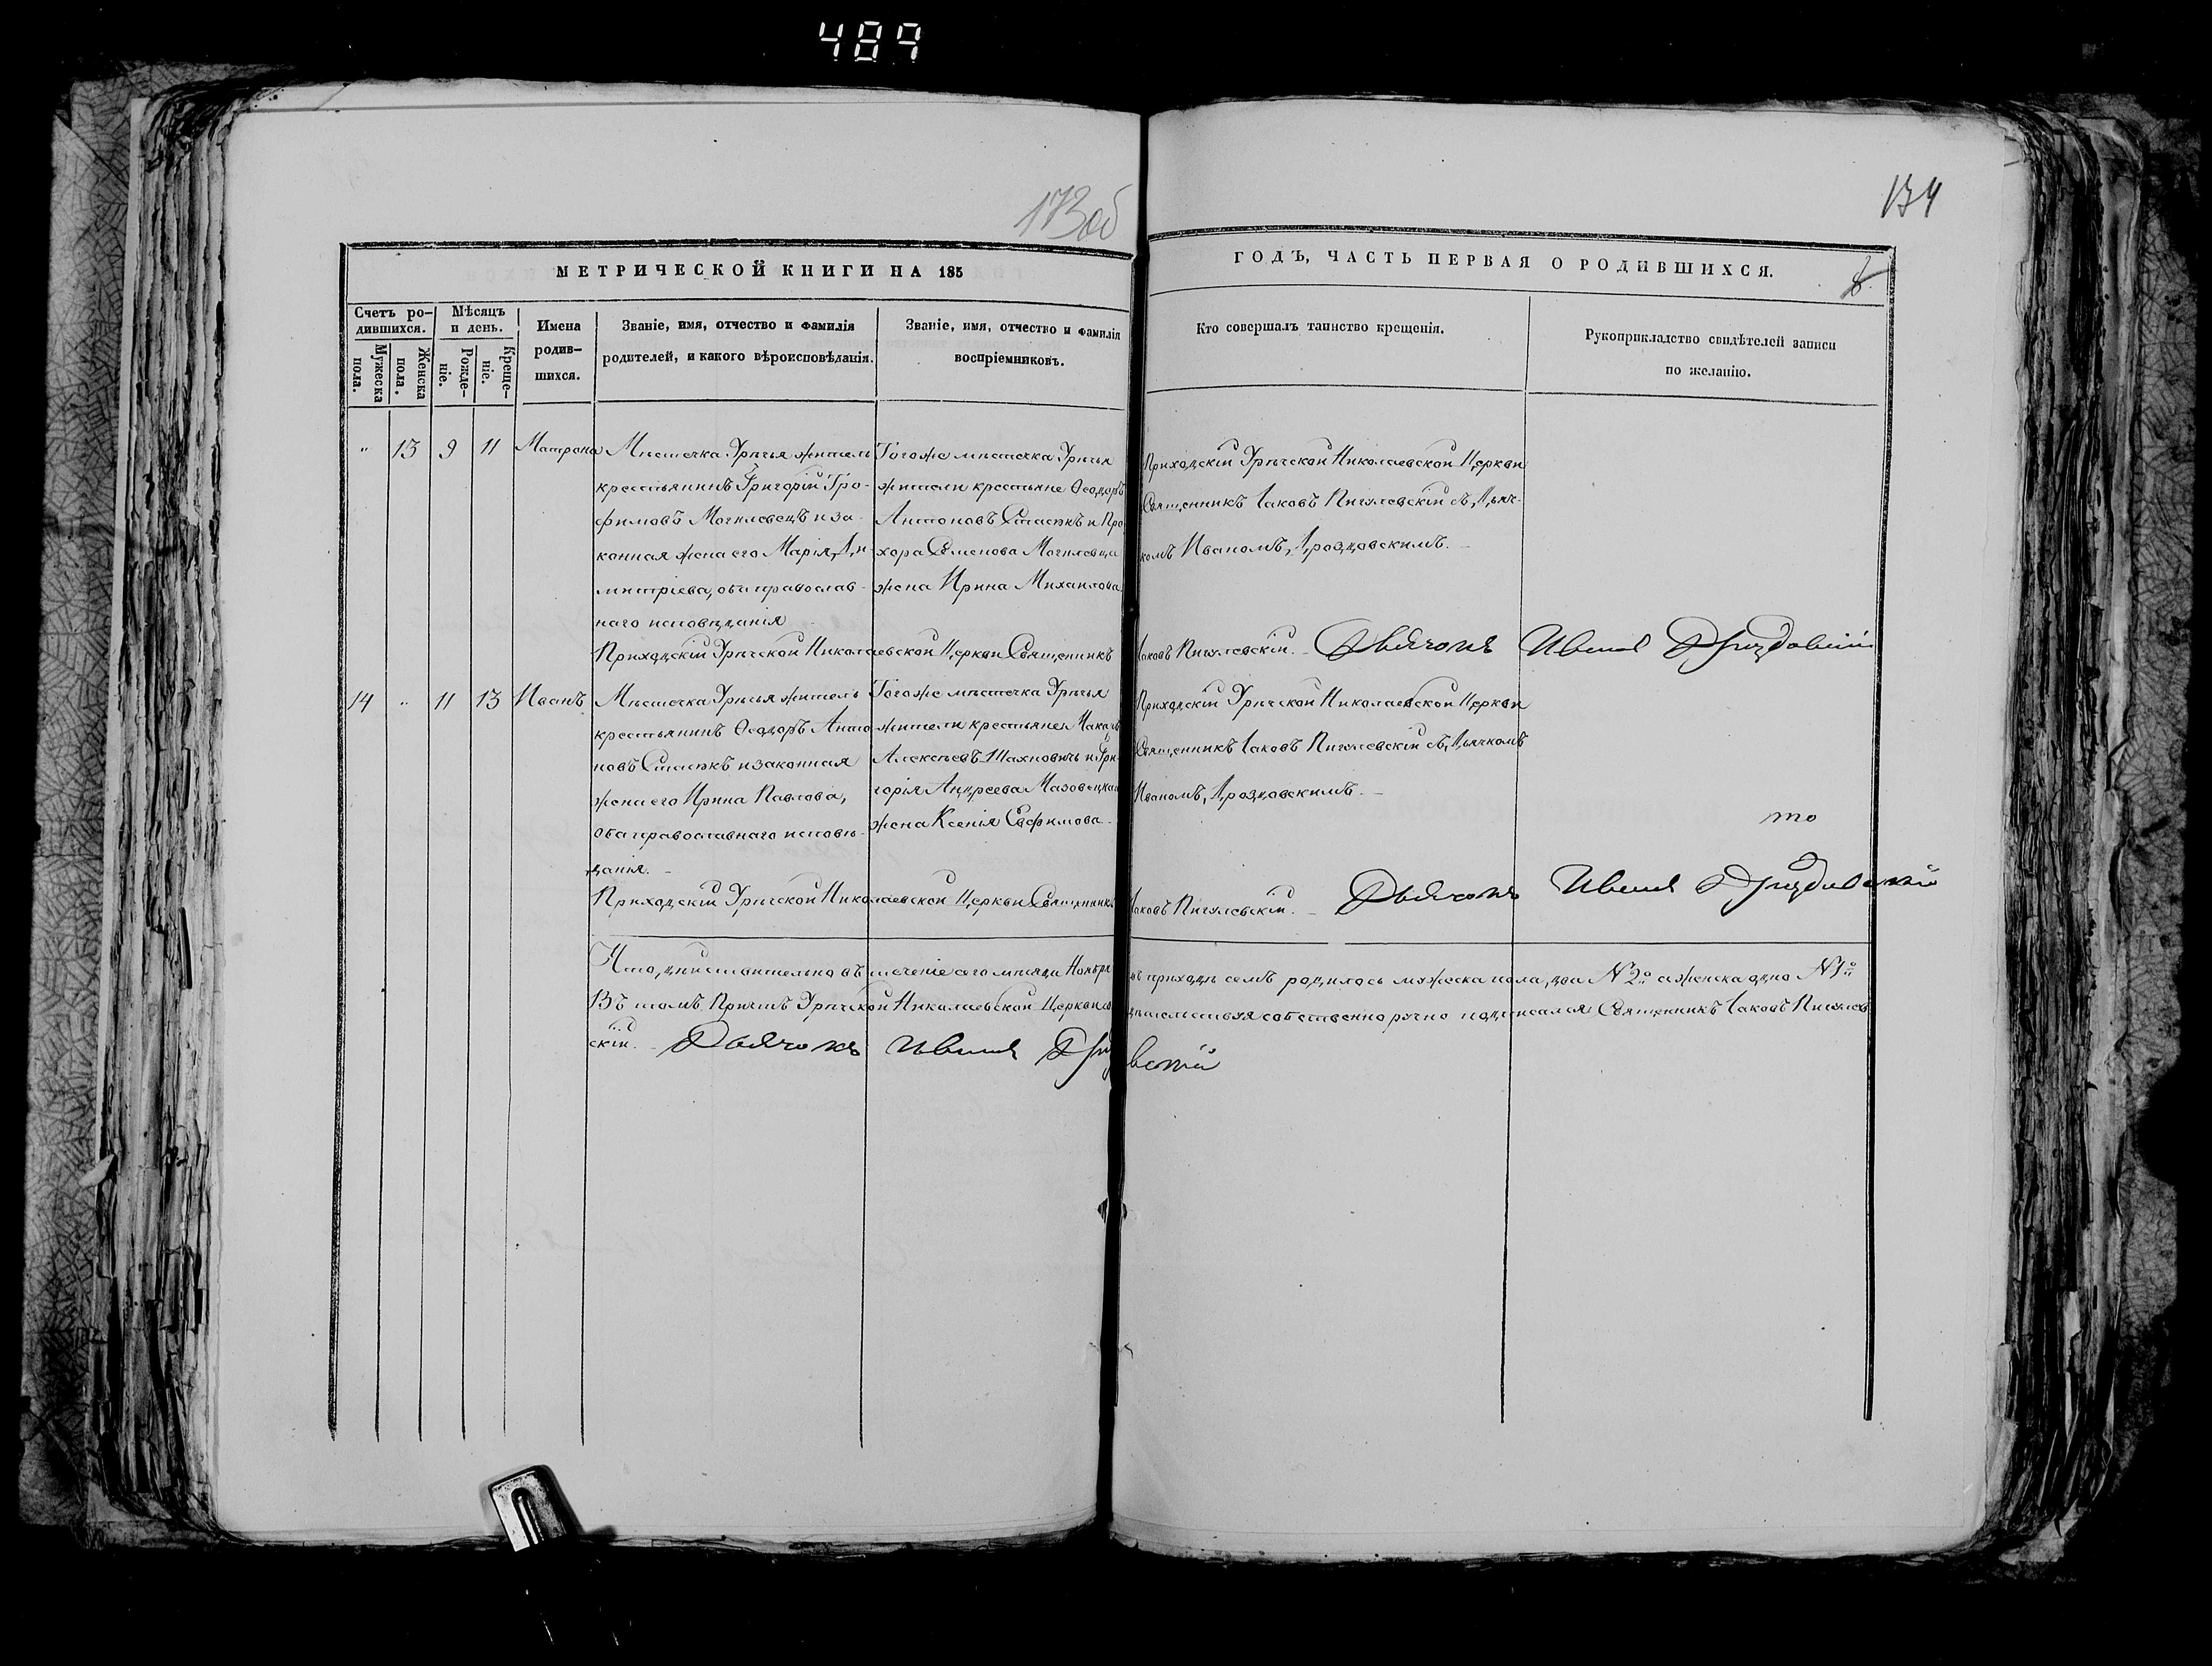 489
173 об
174
МЕТРИЧЕСКОЙ КНИГИ НА 185
ГОДЪ, ЧАСТЬ ПЕРВАЯ О РОДИВШИХСЯ.
Счетъ ро-
дившихся.
Мужеска
пола.
Женска
пола.
Мѣсяцъ
и день.
Рожде-
ніе.
Креще-
ніе.
Имена
родив-
шихся.
Званіе, имя, отчество и фамилія
родителей, и какого вѣроисповѣданія.
Званіе, имя, отчество и фамилія
воспріемниковъ.
Кто совершалъ таинство крещенія.
Рукоприкладство свидѣтелей записи
по желанію.
" 13 9 11 Матрона
Мѣстечка Урѣчья житель
крестьянинъ Григорій Тро-
фимовъ Могилевецъ и за-
конная жена его Марія Ди-
митріева, оба православ-
наго исповѣданія
Тогоже мѣстечка Урѣчья
жители крестьяне Ѳеодоръ
Антоновъ Стасюкъ и Про
хора Семенова Могилевца
жена Ирина Михаилова
Приходскій Урѣчской Николаевской Церкви
Священникъ Іаковъ Пигулевскій съ Дьяч-
комъ Иваномъ Дроздовскимъ.
Приходскій Урѣчской Николаевской Церкви Священникъ Іаковъ Пигулевскій. Дьячокъ Иванъ Дроздовскій
14 " 11 13 Иванъ
Мѣстечка Урѣчья житель
крестьянинъ Ѳеодоръ Анто
новъ Стасюкъ и законная
жена его Ирина Павлова,
оба православнаго исповѣ-
данія.
Тогоже мѣстечка Урѣчья
жители крестьяне
Алексѣевъ Шахновичъ и Гри-
горія Андреева Мазовецкаго
жена Ксенія Евфимова
Приходскій Урѣчской Николаевской Церкви
Священникъ Іаковъ Пигулевскій съ Дьячкомъ
Иваномъ Дроздовскимъ.
то
Приходскій Урѣчской Николаевской Церкви Священникъ Іаковъ Пигулевскій. Дьячокъ Иванъ Дроздовскій
Что дѣйствительно въ теченіе сего мѣсяца Ноября въ приходѣ семъ родилось мужеска пола два N 2й а женска одно N 1й
Въ томъ Причтъ Урѣчской Николаевской Церкви свидѣтельствуя собственноручно подписался Священникъ Іаковъ Пигулев
скій. Дьячокъ Иванъ Дроздовскій